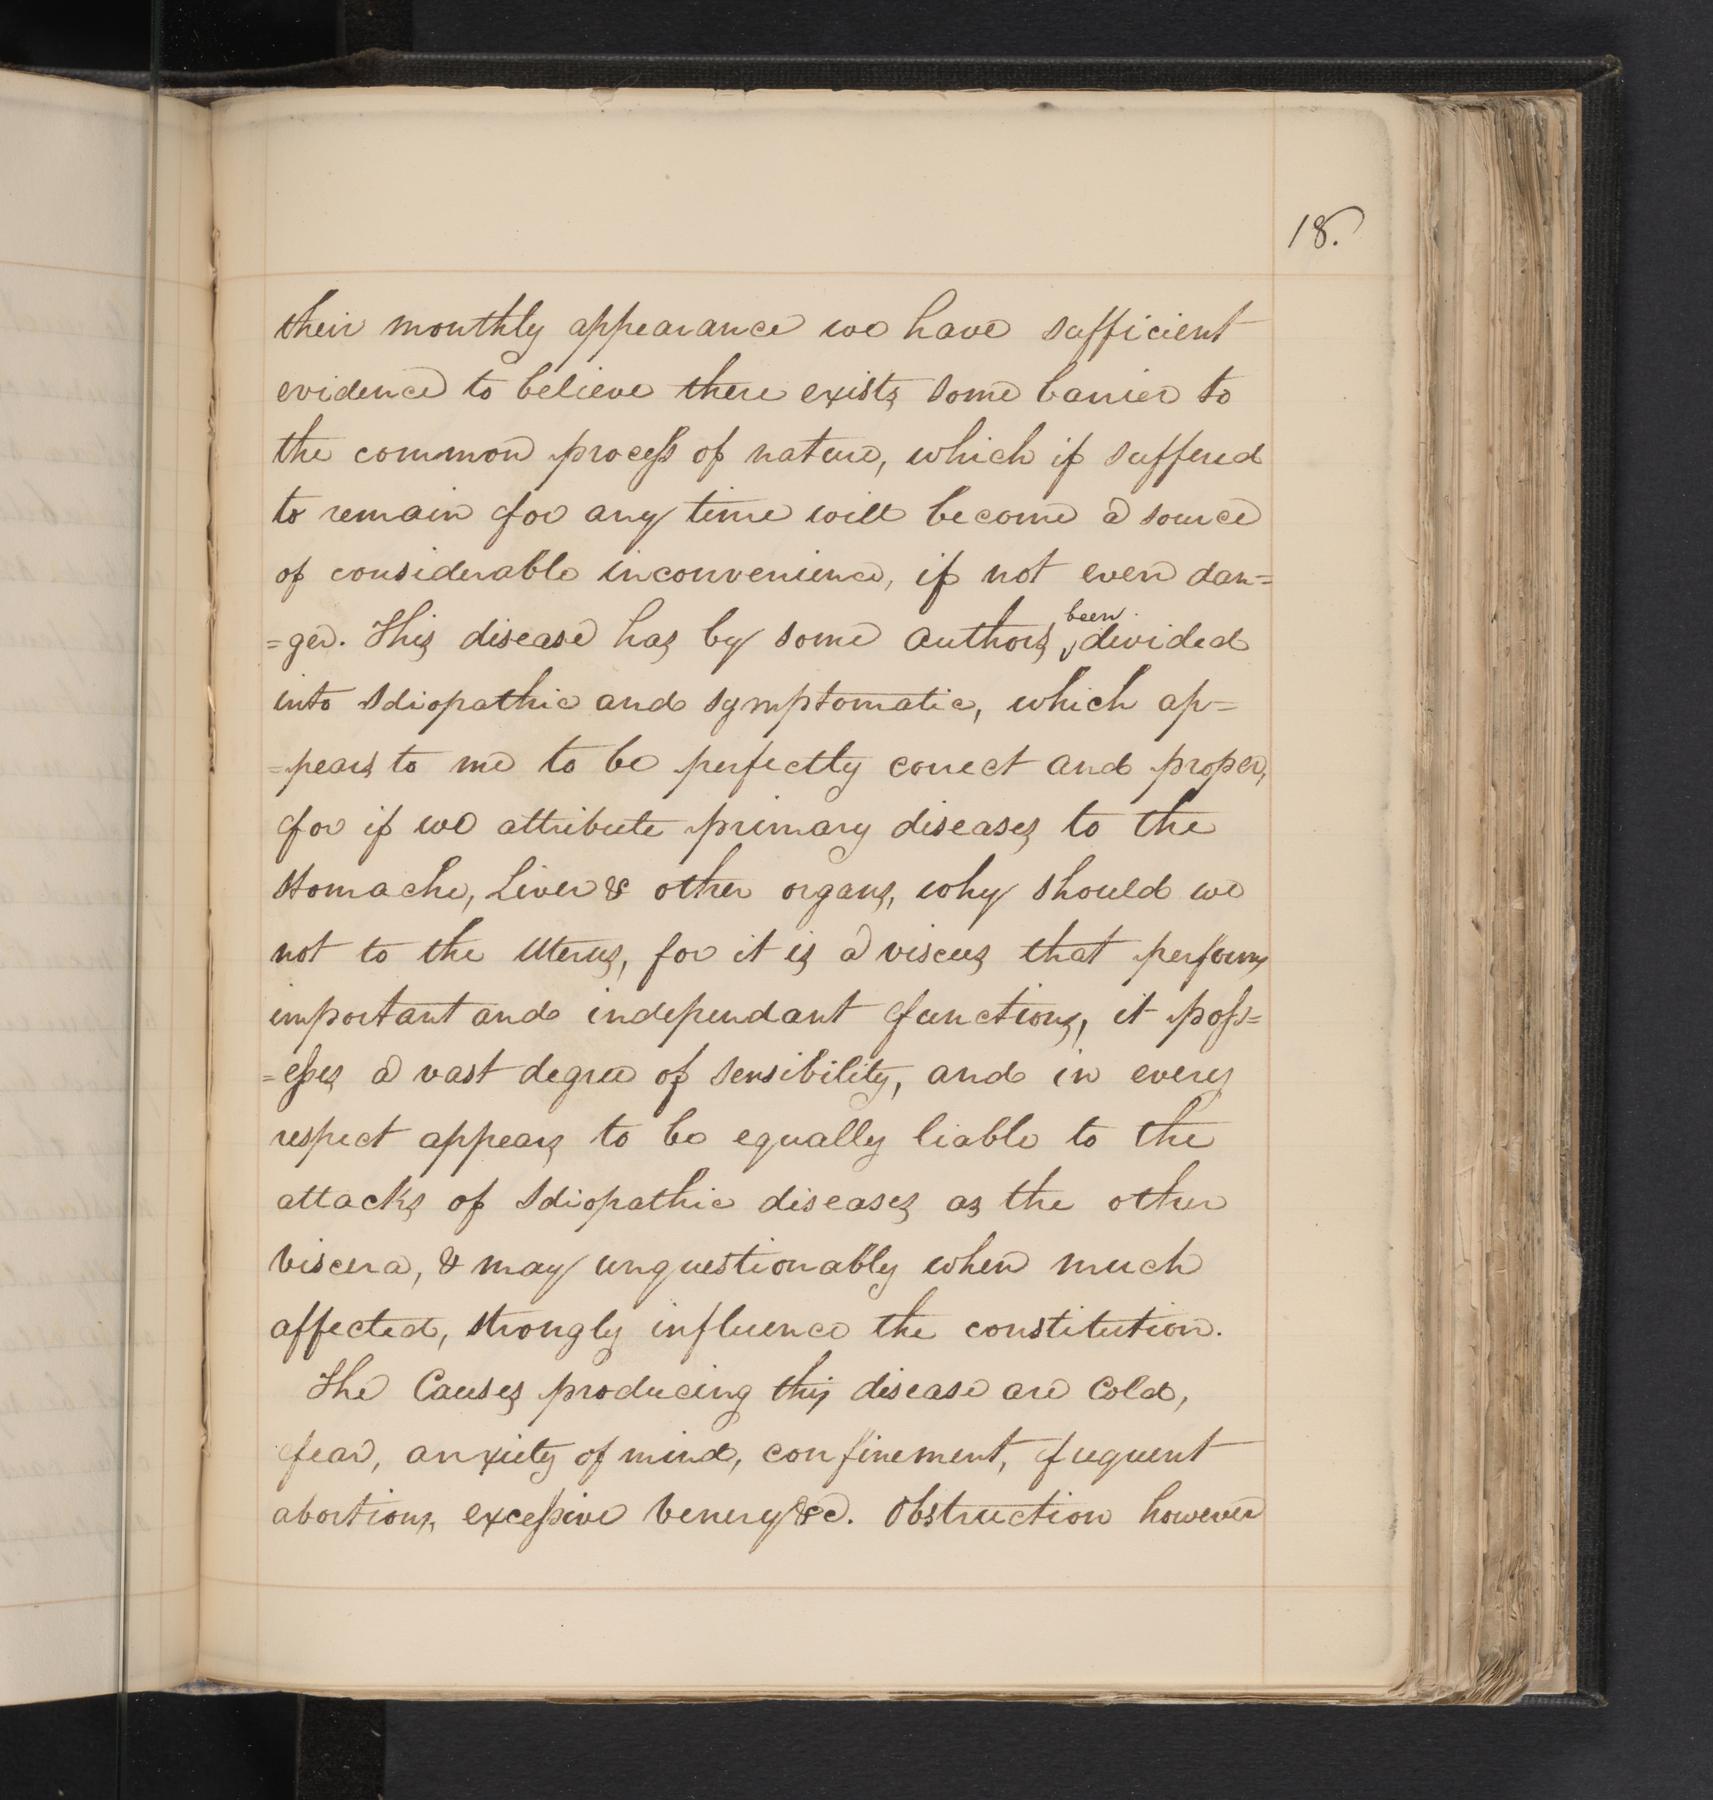 18.
their monthly appearance we have sufficient
evidence to believe there exists some barrier to
the common process of nature, which if suffered
to remain for any time will become a source
of considerable inconvenience, if not even dan=
=ger. This disease has by some authors been devided
into Idiopathic and symptomatic, which ap=
=pears to me to be perfectly correct and proper,
for if we attribute primary diseases to the
stomache, Liver & other organs, why should we
not to the Uterus, for it is a viscus that performs
important and independant functions, it poss=
=esses a vast degree of sensibility, and in every
respect appears to be equally liable to the
attacks of Idiopathic diseases as the other
viscera, & may unquestionably when much
affected, strongly influence the constitution.
The Causes producing this disease are Cold,
fear, anxiety of mind, confinement, frequent
abortions, excessive venery &c. Obstruction however